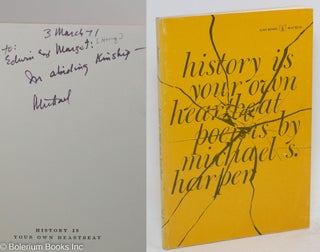 3 March 71
to:
Edwin and Margot:
In abiding Kinship —
Michael
HISTORY IS
YOUR OWN HEARTBEAT
© Bolerium Books Inc.
history is
your own
heartbeat
poems by
michael s.
harper